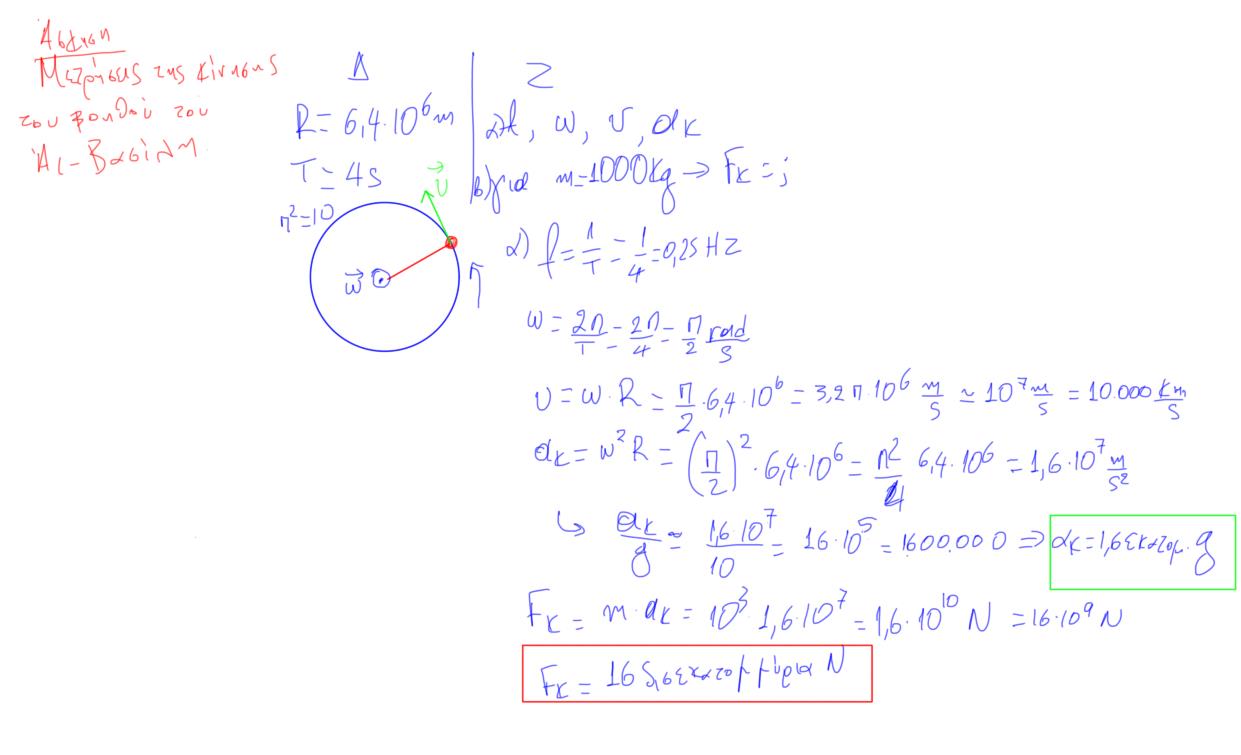 Άσκηση
Μετρήσεις της κίνησης
του βοηθού του
Άι-Βασίλη.
Δ
R = 6,4·10⁶ m
T = 4s
π²=10
υ⃗
ω⃗
Ζ
α) f, ω, υ, ακ
β) για m=1000Kg → Fκ = ;
α) f = 1/T = 1/4 = 0,25 HZ
ω = 2π/T = 2π/4 = π/2 rad/s
υ = ω·R = π/2 · 6,4·10⁶ = 3,2π·10⁶ m/s ≃ 10⁷ m/s = 10.000 Km/s
ακ = ω²R = (π/2)² · 6,4·10⁶ = π²/4 6,4·10⁶ = 1,6·10⁷ m/s²
↳ ακ/g = 1,6 10⁷/10 = 16·10⁵ = 1.600.000 ⇒ ακ = 1,6 εκατομ. g
Fκ = m·ακ = 10³ 1,6·10⁷ = 1,6·10¹⁰ N = 16·10⁹ N
Fκ = 16 δισεκατομμύρια N